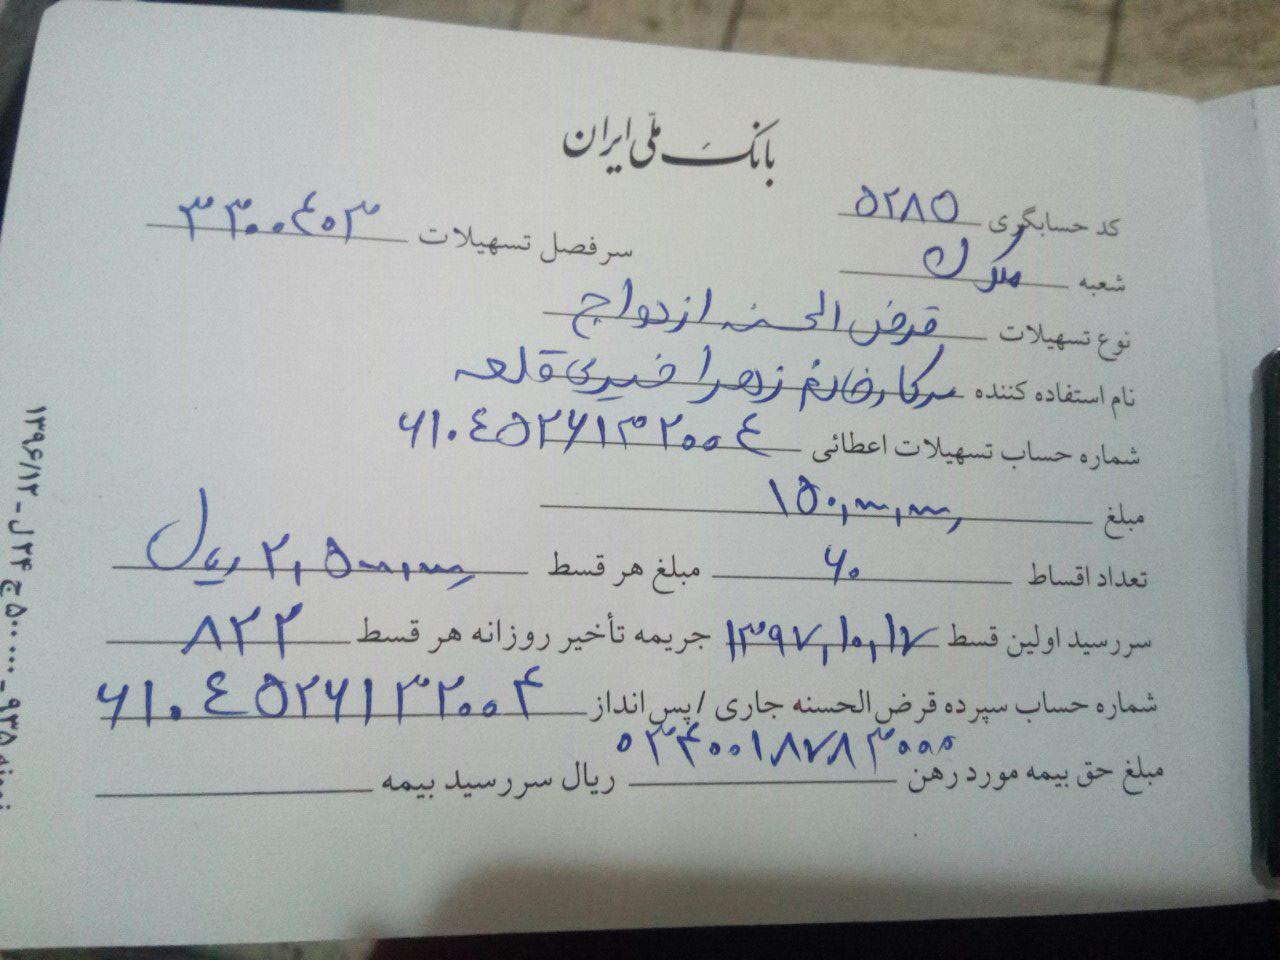 بانک ملّی ایران
کد حسابگری ۵۲۸۵ سرفصل تسهیلات ۳۳۰۰۴۰۳
شعبه ملک
نوع تسهیلات قرض الحسنه ازدواج
نام استفاده کننده سرکار خانم زهرا خیری قلعه
شماره حساب تسهیلات اعطائی ۶۱۰۴۵۲۶۱۳۲۰۰۴
مبلغ ۱۵۰,۰۰۰,۰۰۰
تعداد اقساط ۶۰ مبلغ هر قسط ۲,۵۰۰,۰۰۰ ریال
سررسید اولین قسط ۱۳۹۷,۱۰,۱۷ جریمه تأخیر روزانه هر قسط ۸۲۲
شماره حساب سپرده قرض‌الحسنه جاری / پس‌انداز ۶۱۰۴۵۲۶۱۳۲۰۰۴
۰۳۴۰۰۱۸۷۸۳۰۰۰
مبلغ حق بیمه مورد رهن ریال سررسید بیمه
۱۳۹۶/۱۲ - ل ۲۴ ج ۵۰۰۰۰۰ - ۹۳۵ نمونه